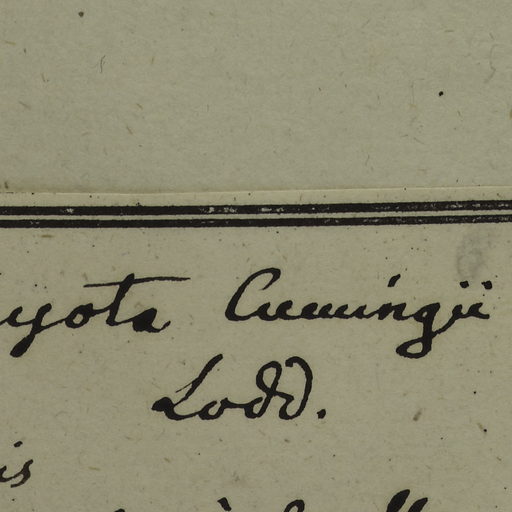 yota Cumingii
Lodd.
is